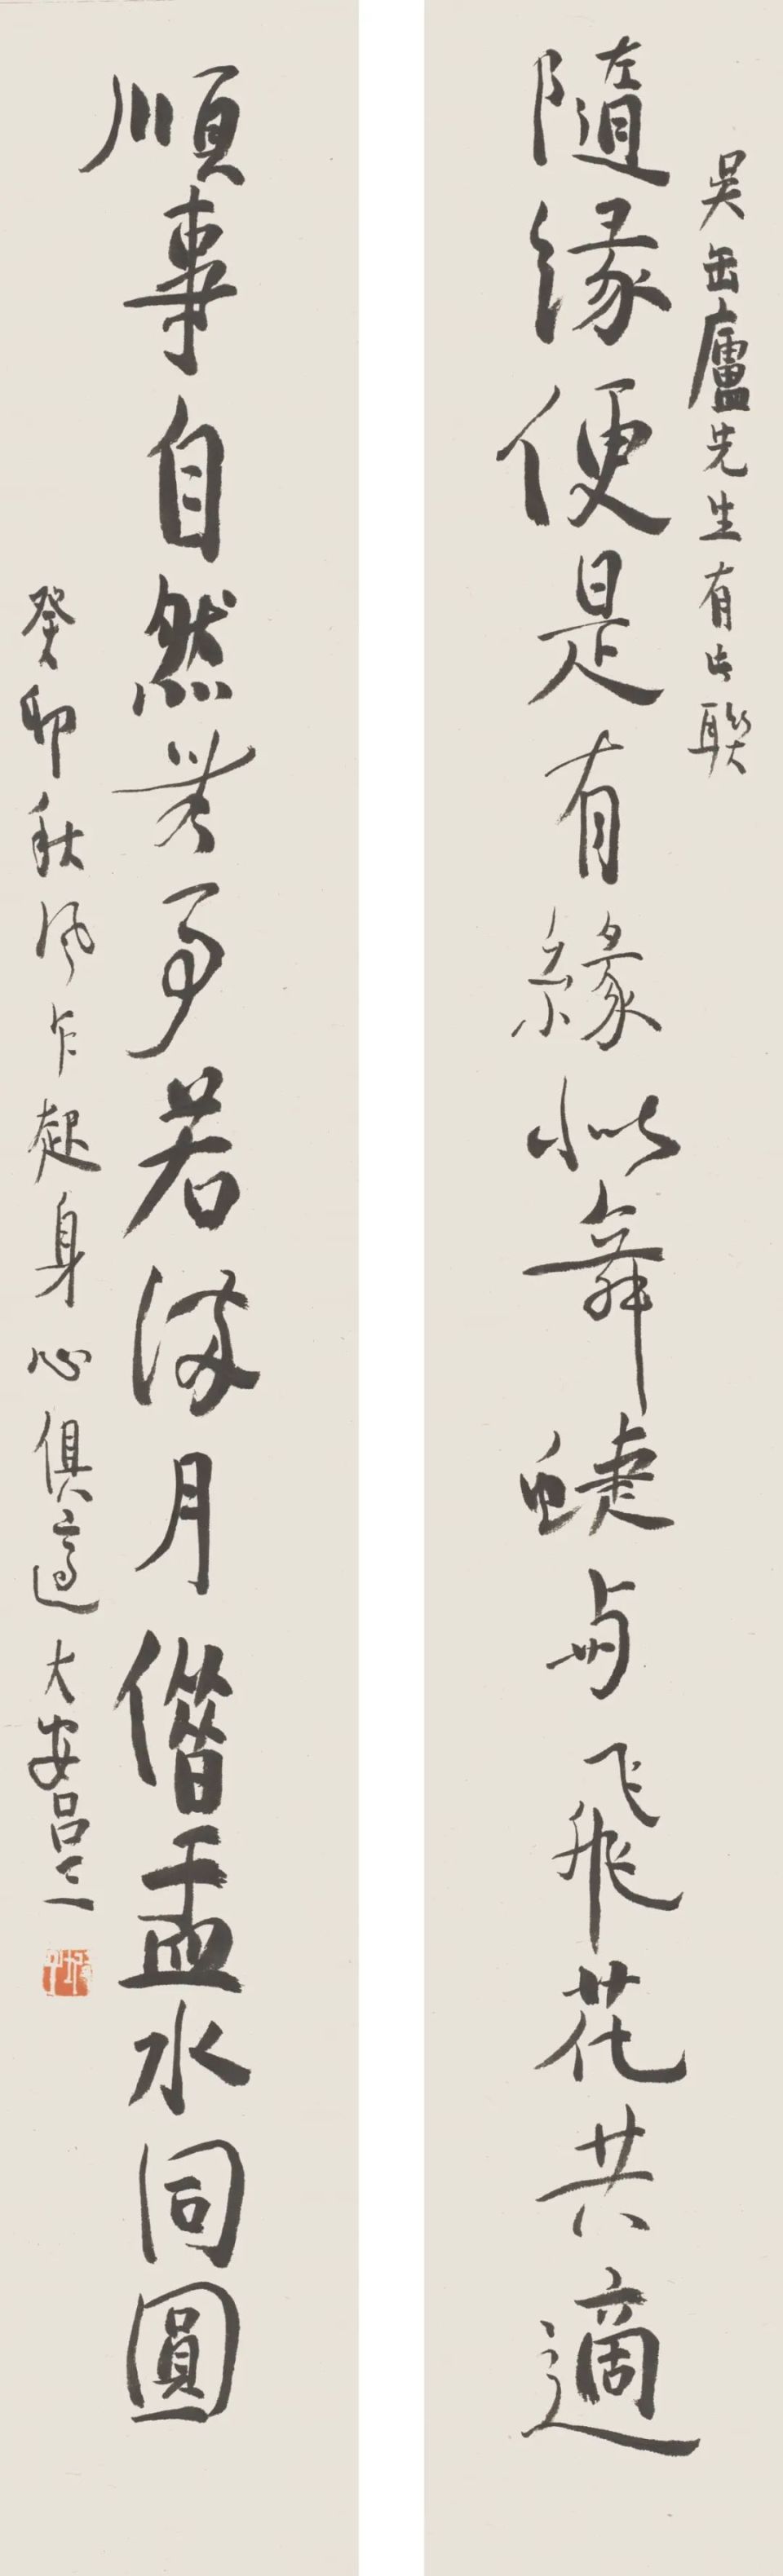 吴缶廬先生有此聯
隨緣便是有緣似舞蜨與飛花共適
順事自然無事若滿月偕盂水同圓
癸卯秋風乍起身心俱適大安呂三